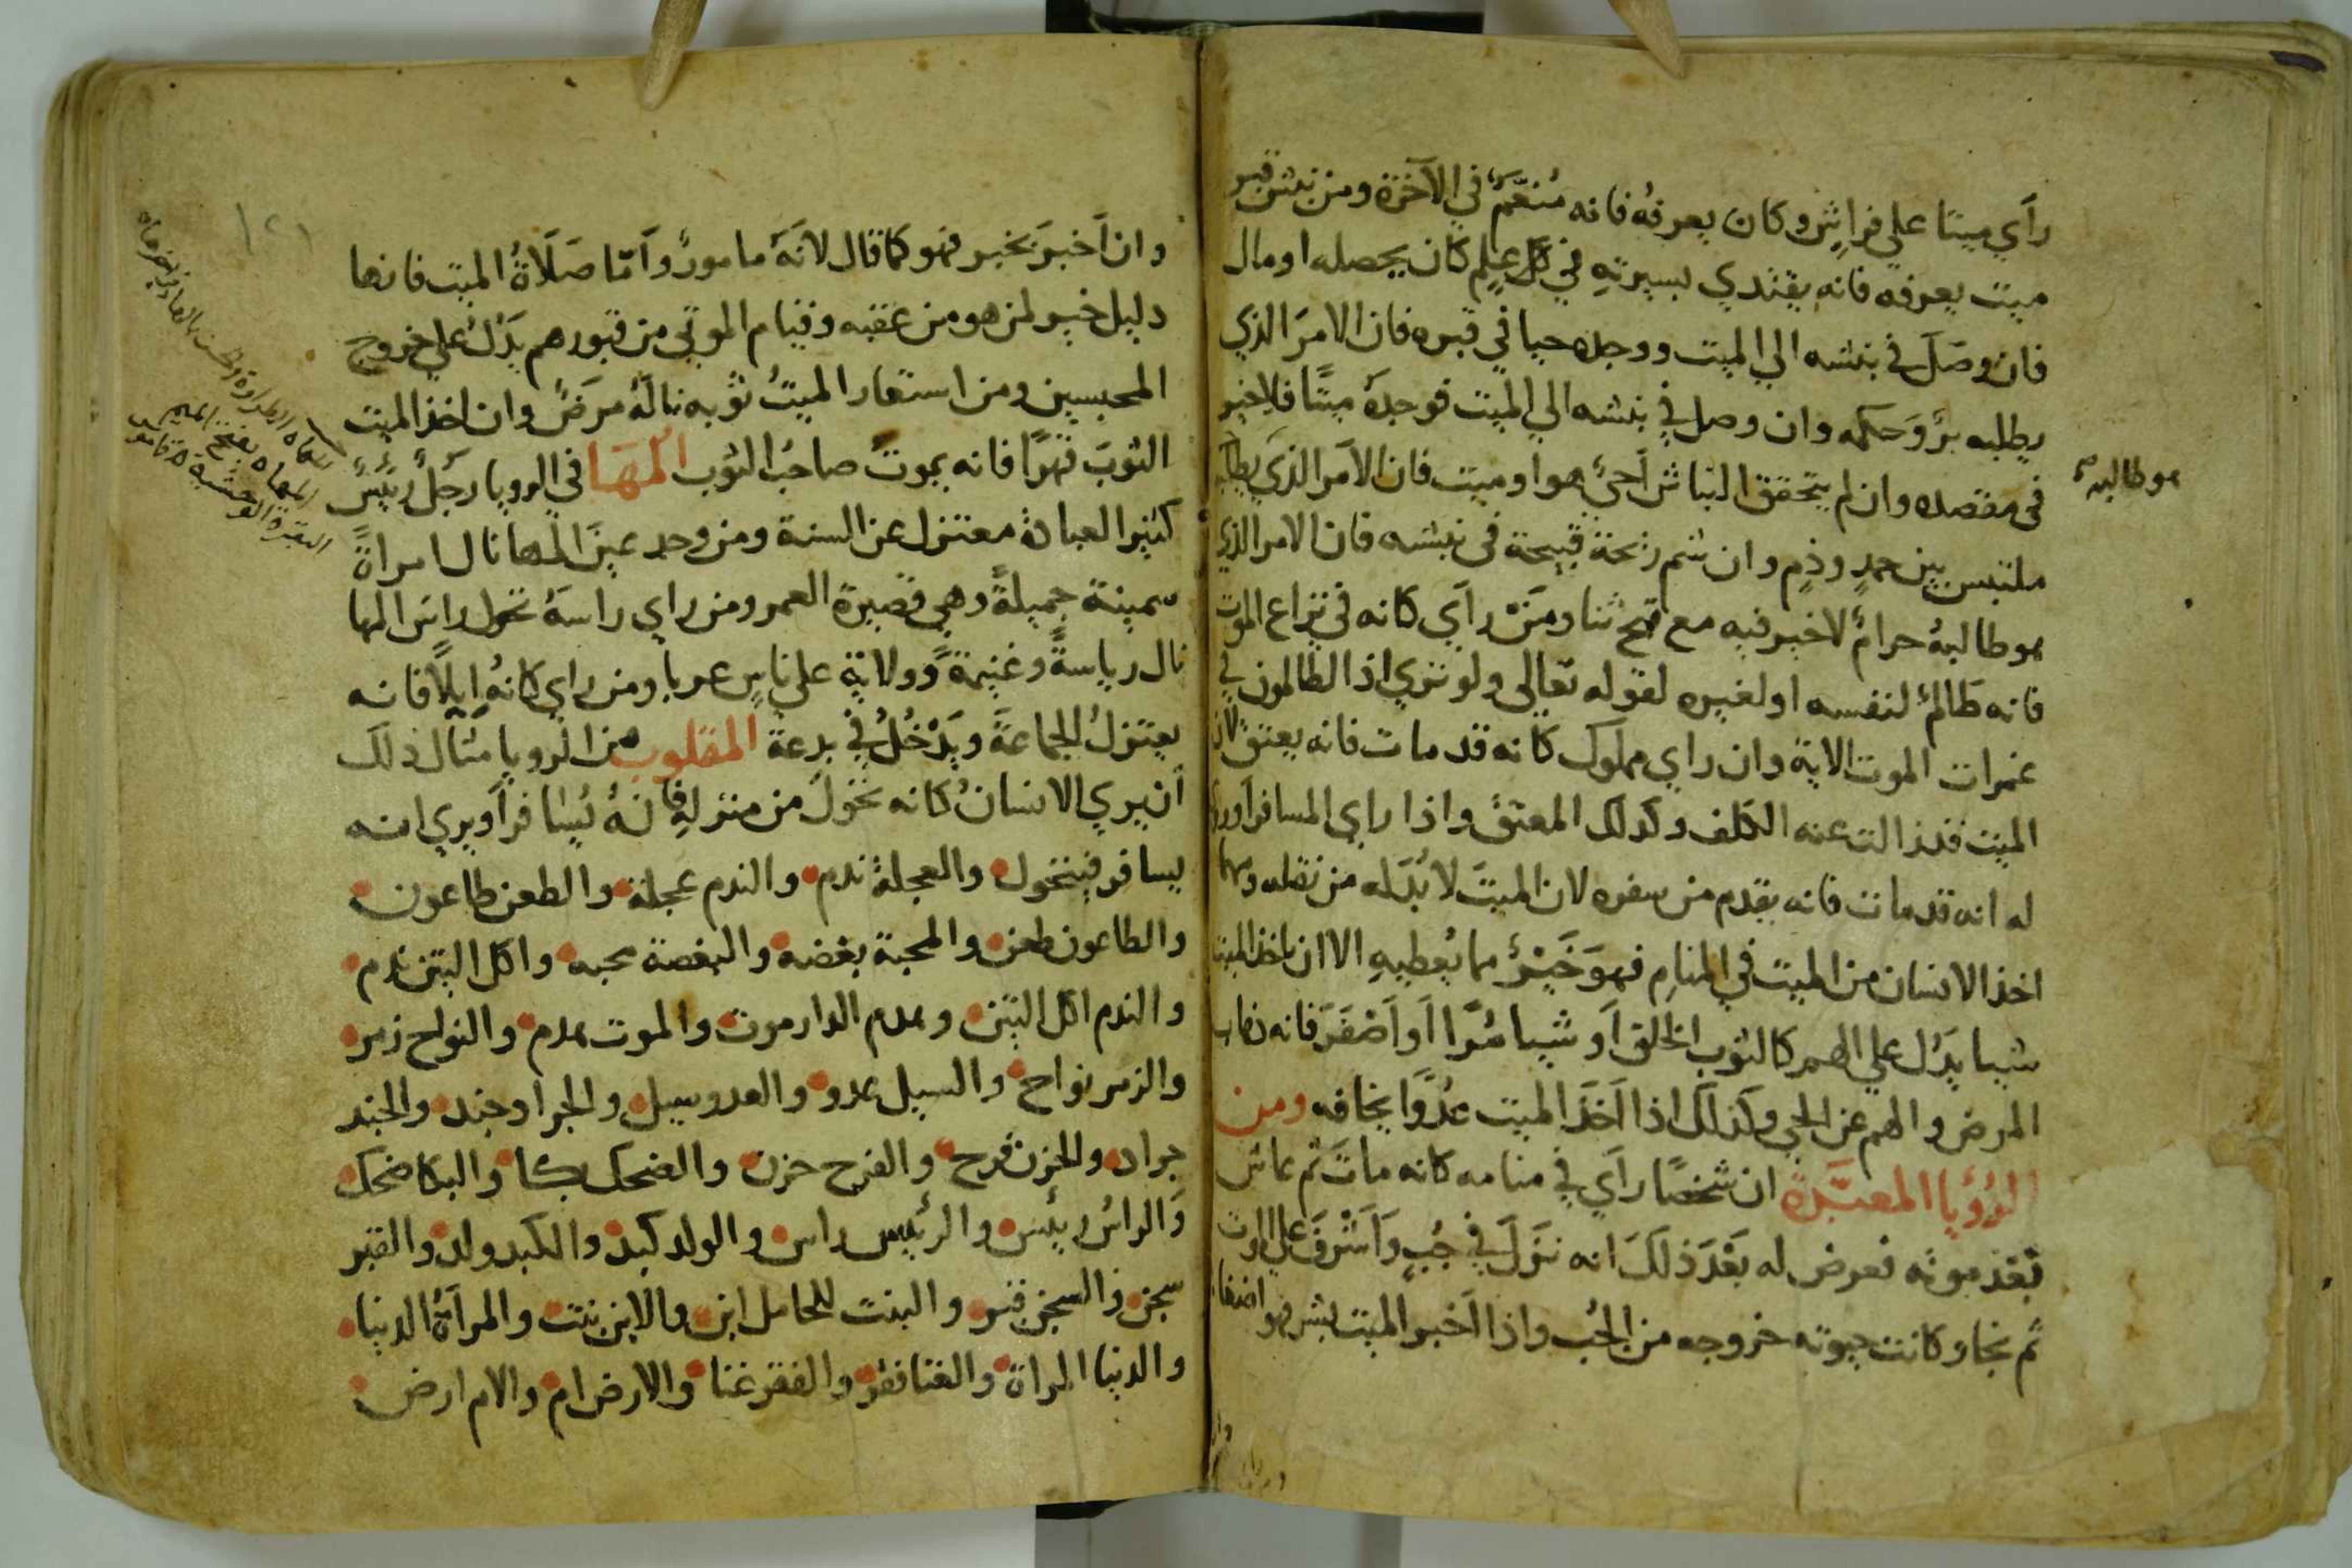 رأي ميتا علي فراش وكان يعرفه فانه مُنعَّم في الآخرة ومن نبش قبر
ميت يعرفه فانه يقتدي بسيرته في كل علم كان يحصله او مال
فان وصَل في بنشه الي الميت ووجده حيا في قبره فان الامر الذي
يطلبه برٌ وحكمه وان وصل في بنشه الي الميت فوجده ميتًا فلا خير
في مقصده وان لم يتحقق النباش أحيٌ هو او ميت فان الامر الذي يطلبه
هو طالبه
ملتبس بين حمدٍ وذمٍ وان شم رنحة قبيحة في نبشه فان الامر الذي
هو طالبهُ حرامٌ لا خير فيه مع قبح ثنا ومَنْ رأي كانه في نزاع الموت
فانه ظالمٌ لنفسه او لغيره لقوله تعالى ولو تري اذ الظالمون في
غمرات الموت الاية وان راي مملوك كانه قد مات فانه يعتق لان
الميت قد زالت عنه الكلف وكذلك المعتق واذا راي المسافر او رؤي
له انه قد مات فانه يقدم من سفره لان الميت لا بُدَ له من نقله ومهما
اخذ الانسان من الميت في المنامِ فهوَ خَيْرٌ مما يُعطيهِ الا ان ياخذ الميت
شيا يَدُل علي الهم كالثوب الخلق أو شيا مُرًا أو أصْفَرَ فانه ذهاب
المرض والهم عن الحي وكذلك اذا اخَذَ الميت عدُوًا يخافه ومن
الرُؤيا المعبَّرة ان شخصًا رأي في منامه كانه مات ثم عاش
بَعْد موته فعرض له بَعْدَ ذلكَ انه نزَلَ في جُبٍ وَأشْرفَ علي الموت
ثم نجا وكانت حيوته خروجه من الجُب واذا أخبر الميت بشر فهو اضغاث
وان أخبرَ بخير فهو كما قال لانَهَ مامورٌ وأمّا صَلَاةُ الميت فانها
دليل خير لمن هو من عقبه وقيام الموتي من قبورهم يَدُلُ علي خروج
المحبسين ومن استعار الميتُ ثوبه نالَهُ مرَضٌ وان اخذ الميت
الثوبَ قهرًا فانه يموتُ صاحبُ الثوب المَهَا في الرويا رَجُلٌ رَئيسٌ
كثير العبادة معتزل عن السنة ومن وجد عينَ المها نال امراةً
سمينة جميلةً وهي قصيرة العمر ومن راي راسهُ تحول راسَ المها
نال رياسةً وغنيمةً وولاية علي ناسٍ عربا ومن راي كانهُ ايلًا فانه
يعتزلُ الجماعةَ ويَدْخُلُ في بدعة المقلوب من الرويا مثال ذلك
أن يري الانسانُ كانه تحَول من منزلِهِ فانَهُ يُسَافر أو يري انه
يسافر فيتحول والعجلة ندم والندم عجلة والطعن طاعون
والطاعون طعن والمحبة بغضه والبغضة محبه واكل التين ندم
والندم اكل التين وهدم الدار موت والموت هدم والنواح زمر
والزمر نواح والسيل عدو والعدو سيل والجراد جند والجند
جراد والحزن فرح والفرح حزن والضحك بكا والبكا ضحك
وَالراسُ رَئيس والرئيس راس والولد كبد والكبد ولد والقبر
سجن والسجن قبر والبنت للحامل ابن والابن بنت والمرأة الدنيا
والدنيا المراة والغنا فقر والفقر غنا والارض ام والام ارض
١٢١
المهاه بفتح الميم
البقرة الوحشية قاموس